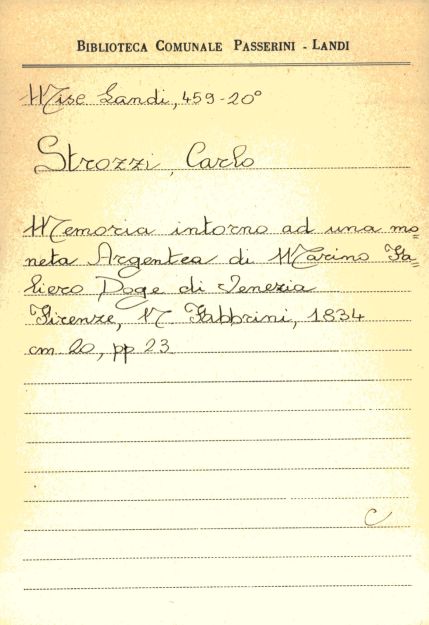 BIBLIOTECA COMUNALE PASSERINI - LANDI
Misc Landi, 459-20°
Strozzi, Carlo
Memoria intorno ad una mo=
neta Argentea di Marino Fa=
liero Doge di Venezia
Firenze, N. Fabbrini, 1834
cm 20, pp 23
C